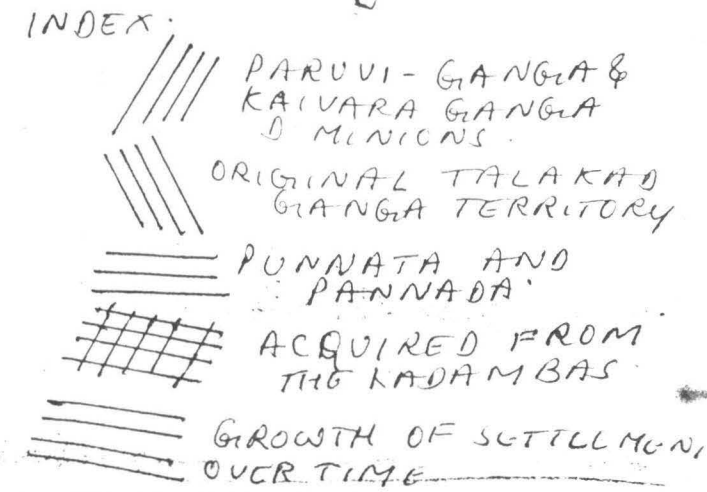 INDEX.
PARUVI-GANGA &
KAIVARA GANGA
D MINIONS.
ORIGINAL TALAKAD
GANGA TERRITORY
PUNNATA AND
PANNADA
ACQUIRED FROM
THE KADAMBAS
GROWTH OF SETTLLMENT
OVER TIME